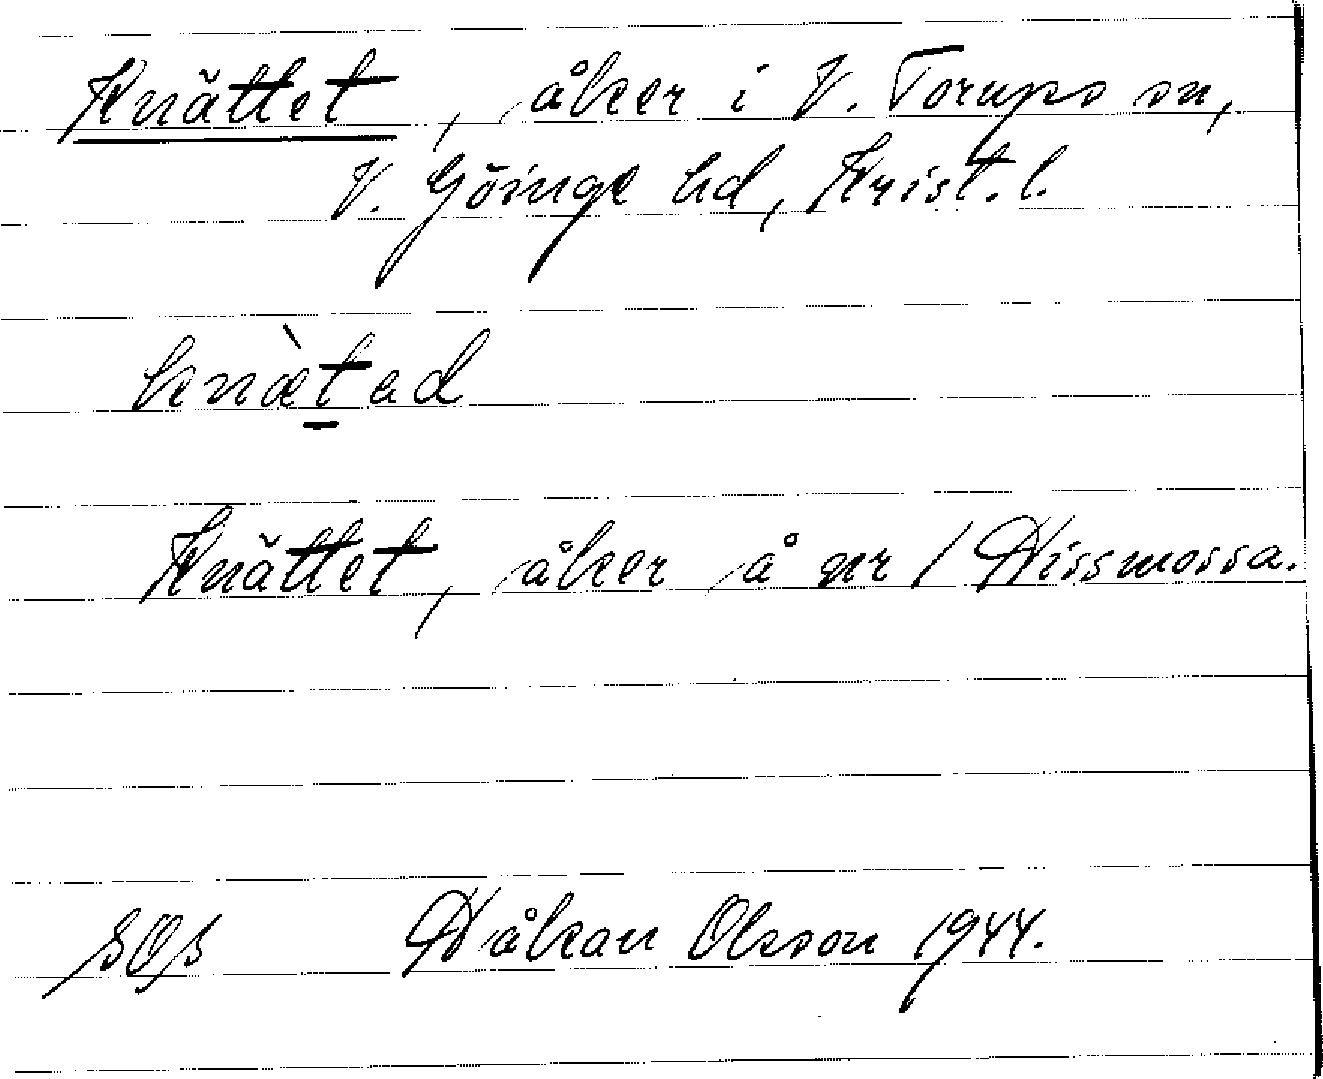 Knättet, åker i V. Torups sn,
V. Göinge hd, Krist. l.
knæ̀t̠ad
Knättet, åker å nr 1 Hissmossa.
SOS Håkan Olsson 1944.